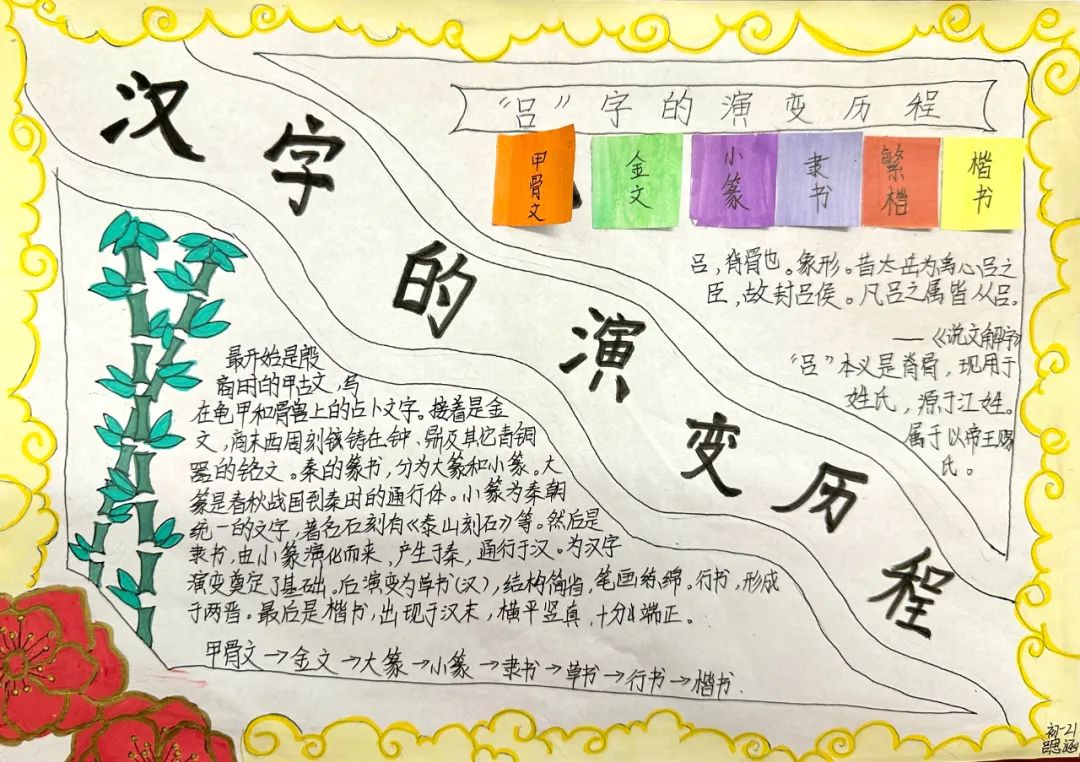 汉字的演变历程
“吕”字的演变历程
甲骨文
金文
小篆
隶书
繁楷
楷书
吕，脊骨也。象形。昔太岳为禹心吕之
臣，故封吕侯。凡吕之属皆从吕。
——《说文解字》
“吕”本义是脊骨，现用于
姓氏，源于江姓。
属于以帝王赐
氏。
最开始是殷
商时的甲古文，写
在龟甲和骨兽上的占卜文字。接着是金
文，商末西周刻铸在钟、鼎及其它青铜
器的铭文。秦的篆书，分为大篆和小篆。大
篆是春秋战国到秦时的通行体。小篆为秦朝
统一的文字，著名石刻有《泰山刻石》等。然后是
隶书，由小篆演化而来，产生于秦，通行于汉。为汉字
演变奠定了基础。后演变为草书(汉)，结构简省，笔画绵。行书，形成
于两晋。最后是楷书，出现于汉末，横平竖真，十分端正。
甲骨文→金文→大篆→小篆→隶书→草书→行书→楷书
初一21
吕思涵